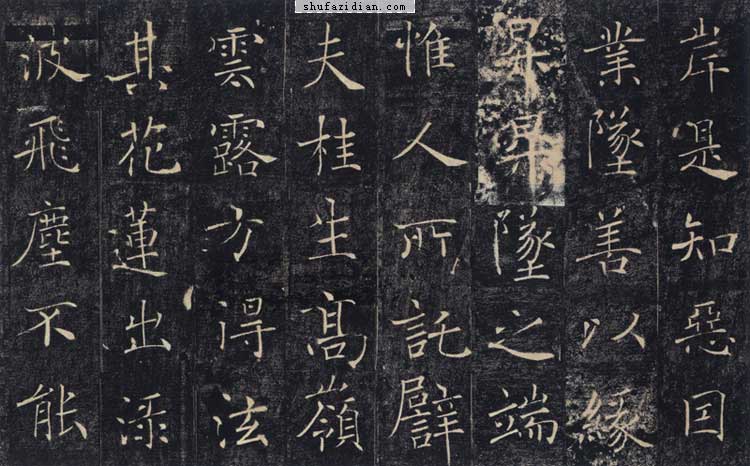 shufazidian.com
岸是知惡因
業墜善以緣
昇昇墜之端
惟人所託譬
夫桂生髙嶺
雲露方得泫
其花蓮出淥
波飛塵不能